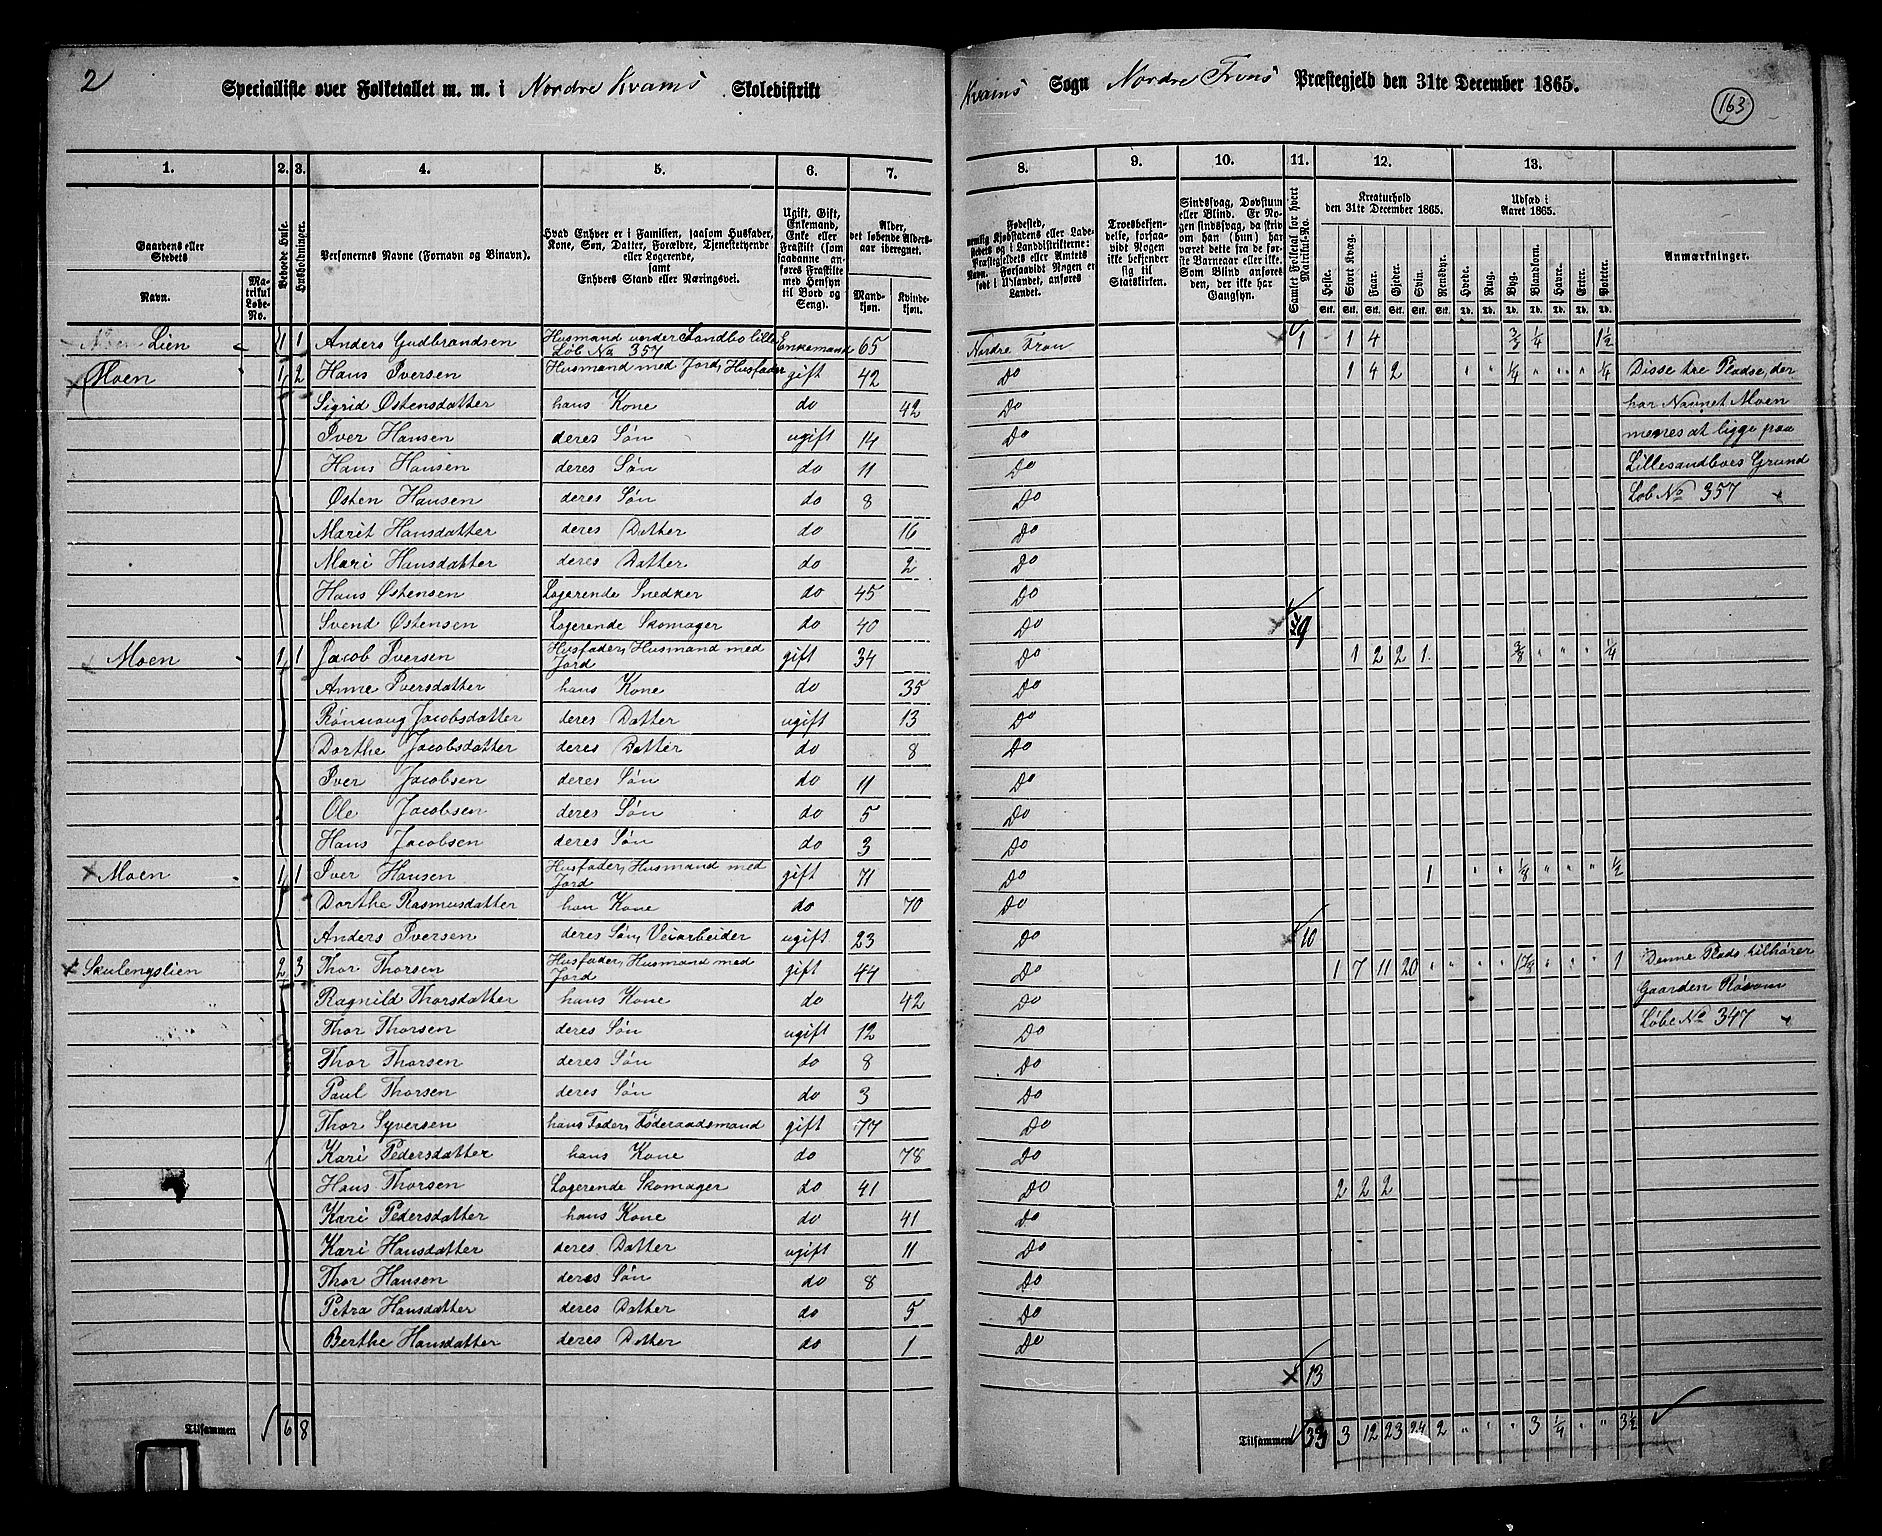 2
Specialliste over Folketallet m. m. i Nordre Kvams Skoledistrikt
Kvams Sogn Nordre Frons Præstegjeld den 31te December 1865.
163
1. 2. 3. 4. 5. 6. 7.
8. 9. 10. 11. 12. 13.
Gaardens eller Stedets
Navn.
Matrikul Løbe-No.
Beboede Huse.
Husholdninger.
Personernes Navne (Fornavn og Binavn).
Hvad Enhver er i Familien, saasom Husfader, Kone, Søn, Datter, Forældre, Tjenestetyende eller Logerende, samt Enhvers Stand eller Næringsvei.
Ugift, Gift, Enkemand, Enke eller Fraskilt (som saadanne anføres Fraskilte med Hensyn til Bord og Seng).
Alder, det løbende Aldersaar iberegnet.
Mandkjøn.
Kvindekjøn.
Fødested, nemlig Kjøbstadens eller Ladestedets og i Landdistrikterne: Præstegjeldets eller Amtets Navn. Forsaavidt Nogen er født i Udlandet, anføres Landet.
Troesbekjendelse, forsaavidt Nogen ikke bekjender sig til Statskirken.
Sindssvag, Døvstum eller Blind. Er Nogen sindssvag, da skrives om han (hun) har været dette fra de første Barneaar eller ikke. Som Blind anføres den, der ikke har Gangsyn.
Samlet Folketal for hvert Matrikul-No.
Kreaturhold den 31te December 1865.
Heste. Stort Kvæg. Faar. Gjeder. Svin. Rensdyr.
Stk. Stk. Stk. Stk. Stk. Stk.
Udsæd i Aaret 1865.
Hvede. Rug. Byg. Blandkorn. Havre. Erter. Poteter.
Td. Td. Td. Td. Td. Td. Td.
Anmærkninger.
Lien 1 1 Anders Gudbrandsen Husmand under Sandbo lille Løb No 357 Enkemand 65 Nordre Fron 1 1 4 1/4 1 1/2
Moen 1 2 Hans Iversen Husmand med Jord, Husfader gift 42 Do 1 4 2 " " 1/4 " " " 1/4 Disse tre Pladse, der
Sigrid Østensdatter hans Kone do 42 Do har Navnet Moen
Iver Hansen deres Søn ugift 14 Do menes at ligge paa
Hans Hansen deres Søn do 11 Do Lillesandboes Grund
Østen Hansen deres Søn do 8 Do Løb No 357
Marit Hansdatter deres Datter do 16 Do
Mari Hansdatter deres Datter do 2 Do
Hans Østensen Logerende Snedker do 45 Do
Svend Østensen Logerende Skomager do 40 Do 9
Moen 1 1 Jacob Iversen Husfader, Husmand med Jord gift 34 Do 1 2 2 1 3/8 " " " 1/4
Anne Iversdatter hans Kone do 35 Do
Rønnaug Jacobsdatter deres Datter ugift 13 Do
Dorthe Jacobsdatter deres Datter do 8 Do
Iver Jacobsen deres Søn do 11 Do
Ole Jacobsen deres Søn do 5 Do
Hans Jacobsen deres Søn do 3 Do
Moen 1 1 Iver Hansen Husfader, Husmand med Jord gift 71 Do 1 " " 1/8 " " " 1/2
Dorthe Rasmusdatter han Kone do 70 Do
Anders Iversen deres Søn, Veiarbeider ugift 23 Do 10
Skulengslien 2 3 Thor Thorsen Husfader, Husmand med Jord gift 44 Do 1 7 11 20 " " " " " " 1 Denne Plads tilhører
Ragnild Thorsdatter hans Kone do 42 Do Gaarden
Thor Thorsen deres Søn ugift 12 Do Løbe No 347
Thor Thorsen deres Søn do 8 Do
Paul Thorsen deres Søn do 3 Do
Thor Syversen hans Fader, Føderaadsmand gift 77 Do
Kari Pedersdatter hans Kone do 78 Do
Hans Thorsen Logerende Skomager do 41 Do 2 2 2
Kari Pedersdatter hans Kone do 41 Do
Kari Hansdatter deres Datter ugift 11 Do
Thor Hansen deres Søn do 8 Do
Petra Hansdatter deres Datter do 5 Do
Berthe Hansdatter deres Datter do 1 Do
13
Tilsammen 6 8
Tilsammen 33 3 12 23 24 2 " " " 3 1/4 " " 3 1/2